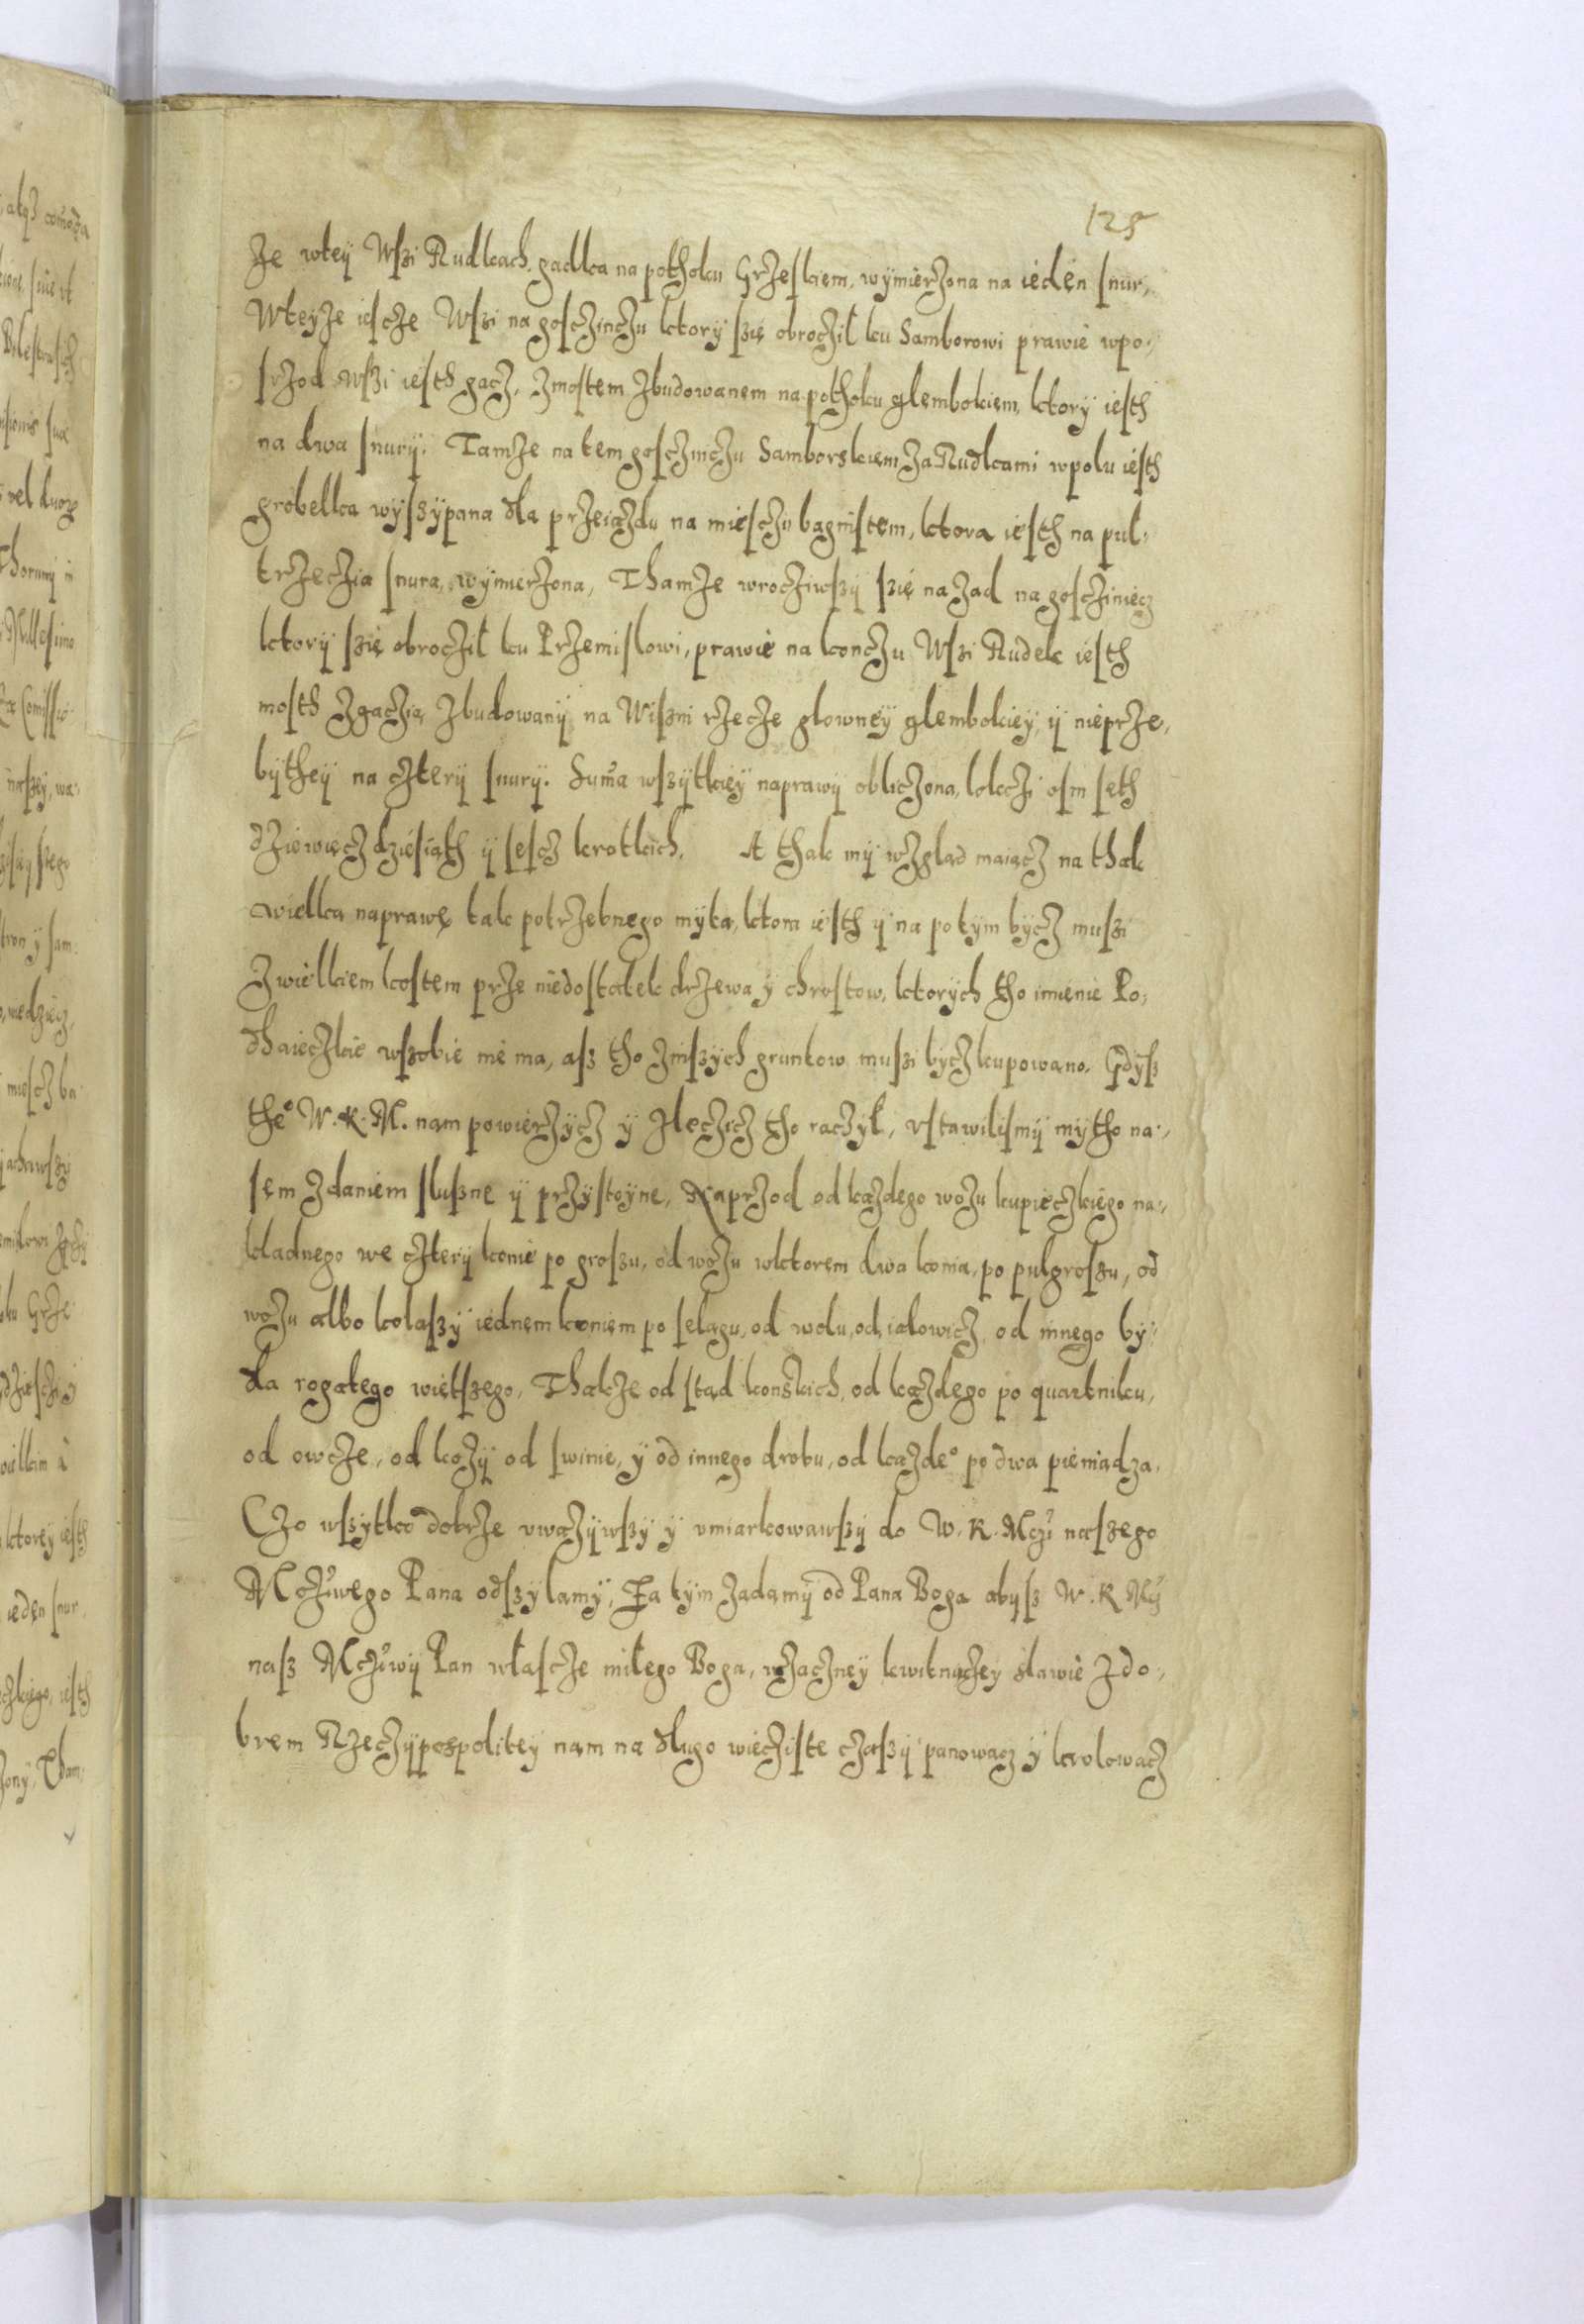 125
Ze wteÿ Wsżi Rudkach, gadka na pothoku Grzeskiem, wÿmierzona na ieden snur,
Wteyze iescze Wsżi na gosczinczu ktorÿ się obroczil ku Samborowi prawie wpo-
srzod wsżi iesth gacz, Zmostem Zbudowanem na pothoku glembokiem, ktorÿ iesth
na dwa snurÿ: Tamze na tem gosczinczu Samborskiem Za Rudkami wpolu iesth
grobelka wÿszÿpana dla przeiazdu na miesczu bagnistem, ktora iesth na pul-
trzeczia snura, wÿmierzona, Thamze wrocziwszÿ szię nazad na goscziniecz
ktorÿ szię obroczil ku Przemislowi, prawie na konczu Wsżi Rudek iesth
mosth Zgaczią, Zbudowanÿ na Wiszni rzecze glowneÿ glembokieÿ, ÿ nieprze,
bÿtheÿ na czterÿ snurÿ. Sum̃a wszÿtkieÿ naprawÿ obliczona, lokczi osm seth
dziewiecz dziesiath ÿ sescz krotkich. A thak mÿ wzglad maiacz na thak
wielka naprawę tak potrzebnego mÿta, ktora iesth ÿ na potym bÿcz musżi
Zwielkiem kostem prze niedostatek drzewa ÿ chrostow, ktorÿch tho imienie Po-
dhaieczkie wsżobie nie ma, asz tho Zinszÿch gruntow musżi bÿcz kupowano. Gdÿsz
the° W. K. M. nam powierzÿcz ÿ Zleczicz tho raczÿl, vstawilismÿ mÿtho na-
sem Zdaniem sluszne ÿ przÿstoÿne, Naprzod od kazdego wozu kupieczkiego na-
kladnego we czterÿ konie po groszu, od wozu wktorem dwa konia, po pulgroszu, od
wozu albo kolaszÿ iednem koniem po selagu, od wolu, od ialowicz, od innego bÿ-
dla rogatego wietszego, Thakze od stad konskich, od kazdego po quartniku,
od owcze, od kozÿ od swinie, ÿ od innego drobu, od kazde° po dwa pieniadza.
Czo wszÿtko dobrze vwazÿwszÿ ÿ vmiarkowawszÿ do W. K. Mczi naszego
Mcziwego Pana odszÿlamÿ, Za tÿm zadamÿ od Pana Boga abÿsz W. K Mcz
nasz Mcziwÿ Pan włascze miłego Boga, wzaczneÿ kwitnaczeÿ slawie Zdo-
brem Rzeczÿpospoliteÿ nam na dlugo wiecziste czaszÿ panowacz ÿ krolowacz